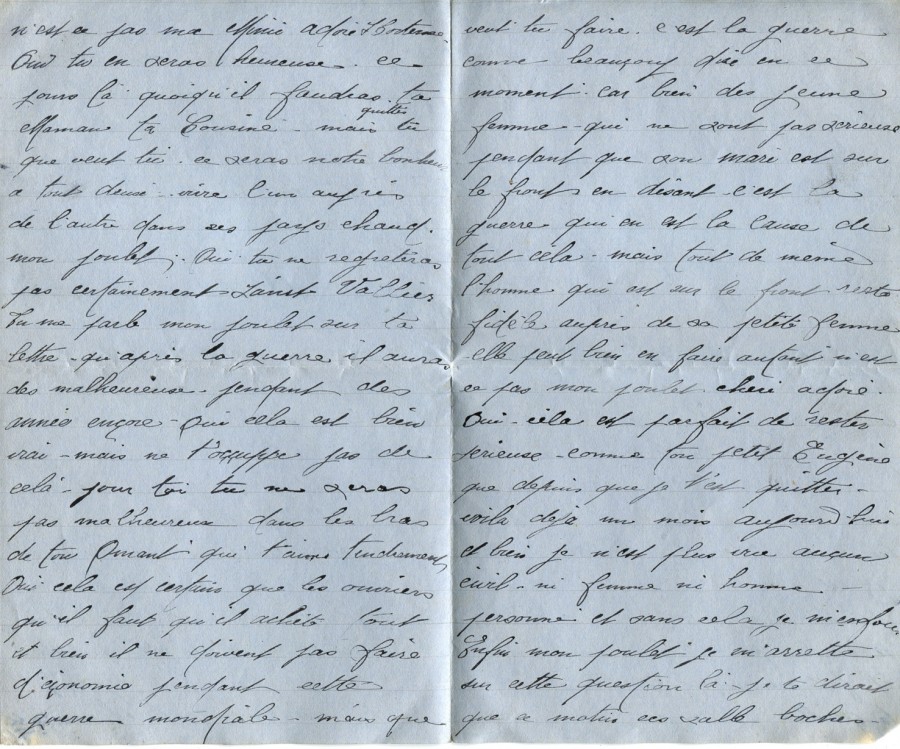 n'est ce pas ma Mimie adoré Hortense
Oui tu en seras heureuse. ce
jours là quoiqu'il faudras ta
Maman ta Cousine - mais tu
quitter
que veut tu. ce seras notre bonheur
a tout deuse. vivre l'un auprès
de l'autre dans ses pays chaud.
mon poulet. Oui tu ne regrêteras
pas certainement Saint Vallier
Tu me parle mon poulet sur ta
lettre - qu'après la guerre il auras
des malheureuse - pendant des
année ençore - Oui cela est bien
vrai - mais ne t'occuppe pas de
celà - pour toi tu ne seras
pas malheureuse dans les bras
de ton Amant qui t'aime tendrement
Oui cela est certins que les ouvriers
qu'il faut qu'il achète tout
et bien il ne doivent pas faire
d'économie pendant cette
guerre mondiale - mais que
veut tu faire. c'est la guerre
comme beauçoup dise en ce
moment. car bien des jeune
femme - qui ne sont pas sérieuse
pendant que son mari est sur
le front en disant - c'est la
guerre qui en est la cause de
tout cela - mais tout de même
l'homme qui est sur le front reste
fidèle auprès de sa petite femme
elle peut bien en faire autant n'est
ce pas mon poulet cheri adoré.
Oui - cela est parfait de rester
sérieuse - comme ton petit Eugène
que depuis que je t'est quitter -
voila déjà un mois aujourd'hui
et bien je n'est plus vue auçun
civil - ni femme ni homme -
personne et sans cela je m'enfou
Enfin mon poulet je m'arrette
sur cette question là - je te dirait
que ce matin ces salle boches -